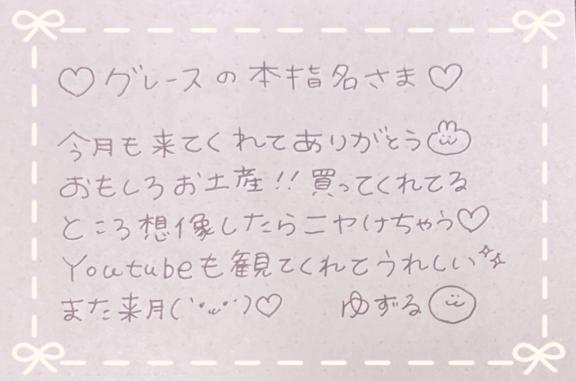 ♡グレースの本指名さま♡
今月も来てくれてありがとう
おもしろお土産!!買ってくれてる
ところ想像したらニヤけちゃう♡
Youtubeも観てくれてうれしい✨
また来月(｀・ω・´)♡ ゆずる